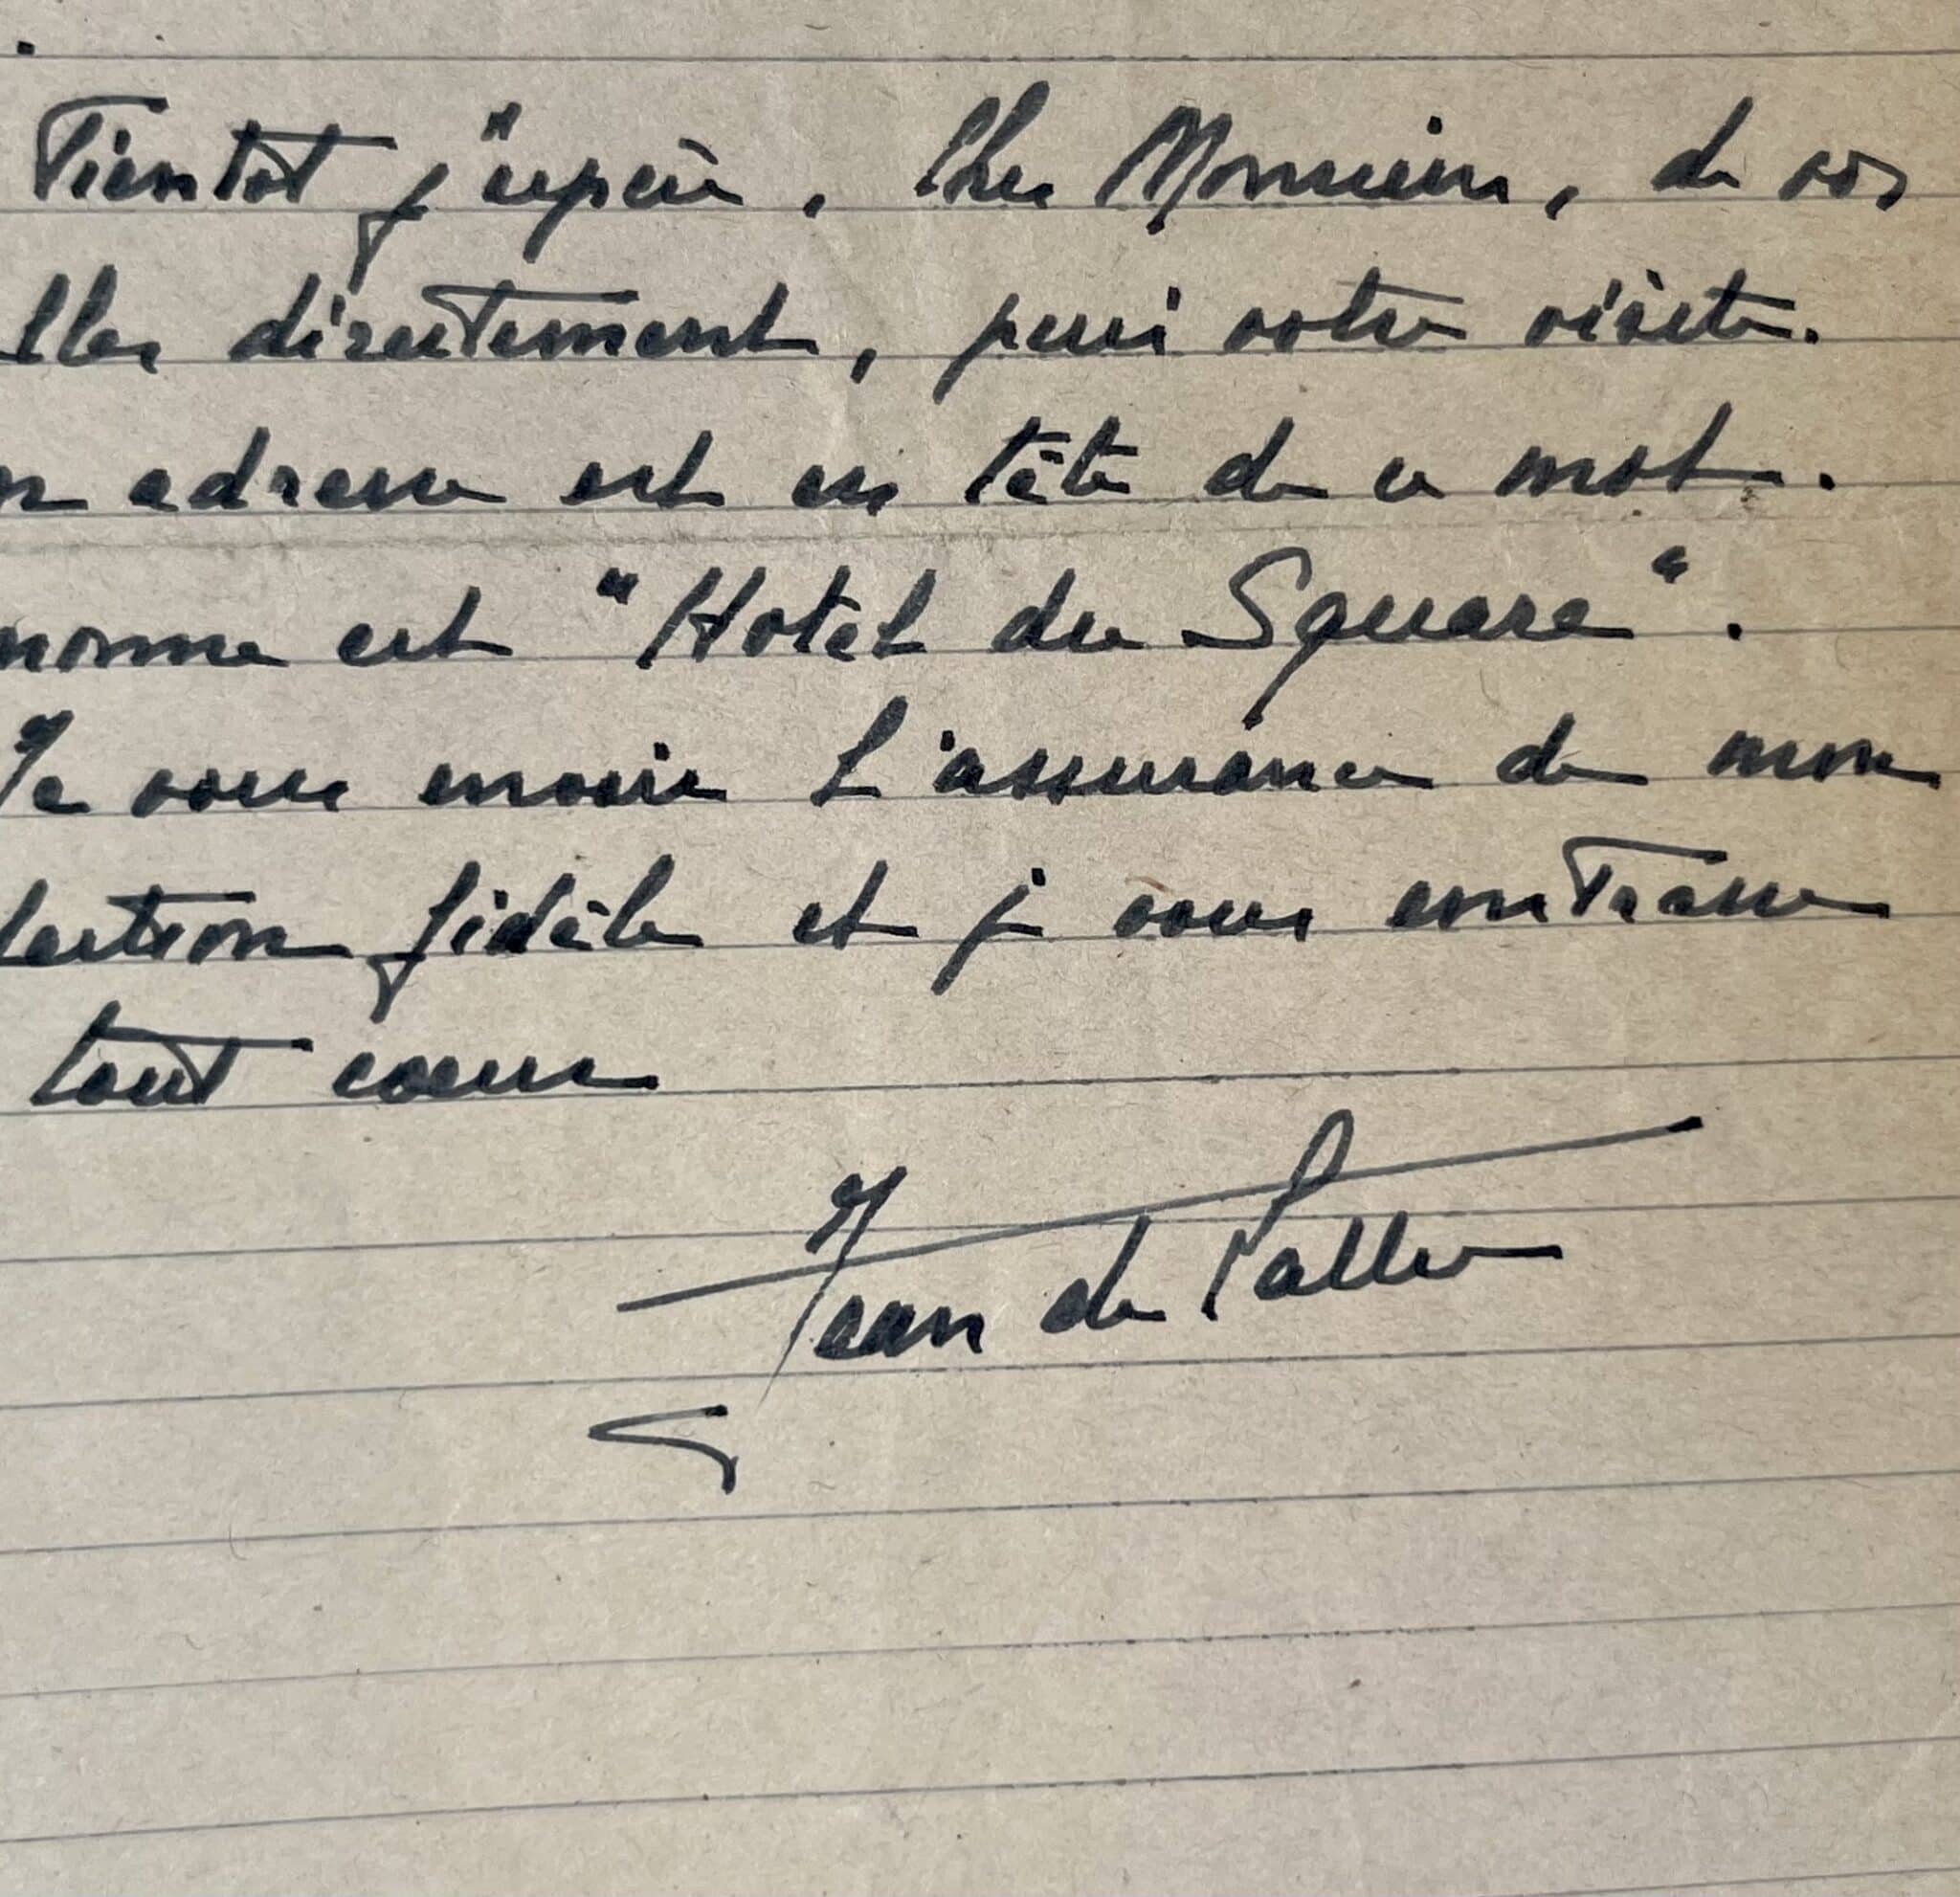 Tientôt j'espère, Cher Monsieur, de vos
lles directement, puis votre visite.
n adresse est en tête de ce mot.
nonne est "Hotel du Square".
Je vous envoie l'assurance de mon
fection fidèle et je vous embrasse
tout coeur
Jean de